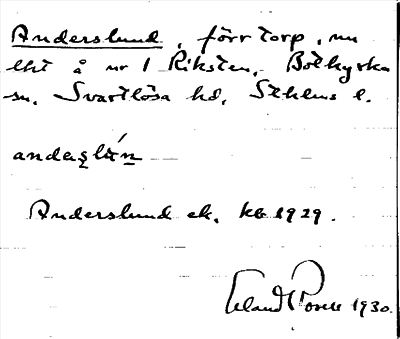 Anderslund, förr torp, nu
lht å nr 1 Riksten, Botkyrka
sn, Svartlösa hd, Sthlms l.
andeʂlún
Anderslund ek. kb 1929.
Erland Rosell 1930.